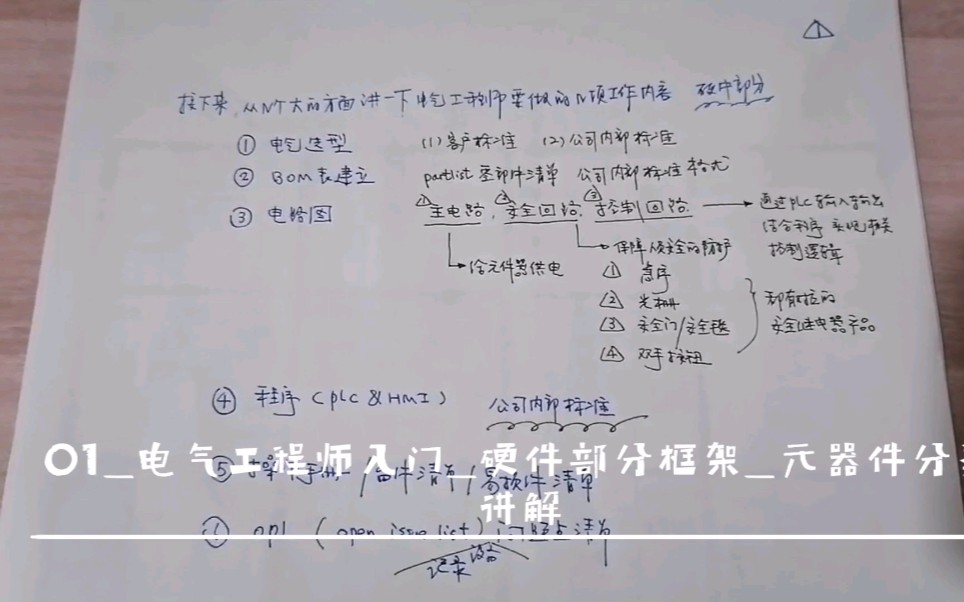 ①
接下来,从N个大的方面讲一下电气工程师要做的N项工作内容 硬件部分
① 电气选型 (1)客户标准 (2)公司内部标准
② BOM表建立 partlist 零部件清单 公司内部标准格式
③ 电路图 ①主电路,②安全回路,③控制回路. → 通过PLC输入输出
结合程序 实现相关
控制逻辑
给元件器供电
保障人安全的防护
① 急停
② 光栅
③ 安全门/安全毯
④ 双手按钮
都有对应的
安全继电器产品
④ 程序(PLC & HMI) 公司内部标准
⑤ 操作手册/备件清单/易损件清单
OPL (open issue list) 问题点清单
记录
01_电气工程师入门_硬件部分框架_元器件分类
讲解